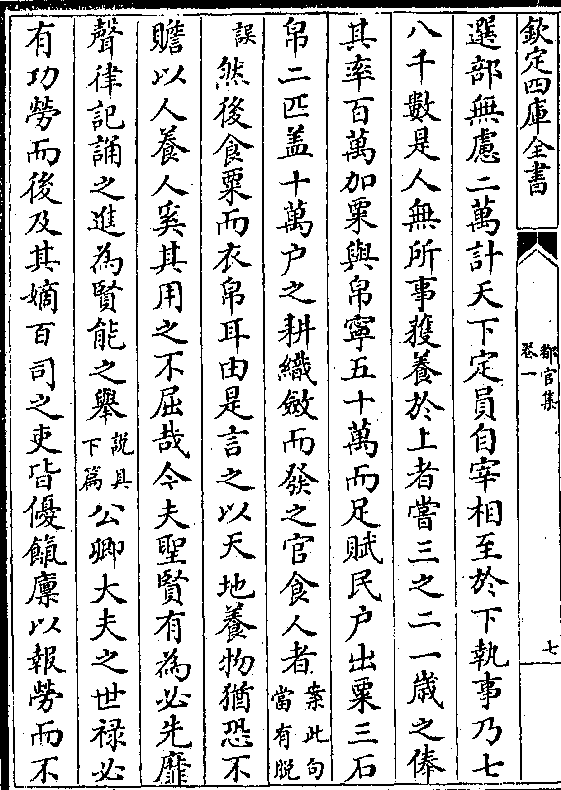 欽定四庫全書
都官集
卷一
七
選部無慮二萬計天下定員自宰相至於下執事乃七
八千數是人無所事獲養於上者嘗三之二一歳之俸
其率百萬加粟與帛寧五十萬而足賦民户出粟三石
帛二匹盖十萬户之耕織斂而發之官食人者案此句當有脱
誤然後食粟而衣帛耳由是言之以天地養物猶恐不
贍以人養人奚其用之不屈哉今夫聖賢有為必先靡
聲律記誦之進為賢能之舉説具下篇公卿大夫之世禄必
有功勞而後及其嫡百司之吏皆優餼廪以報勞而不